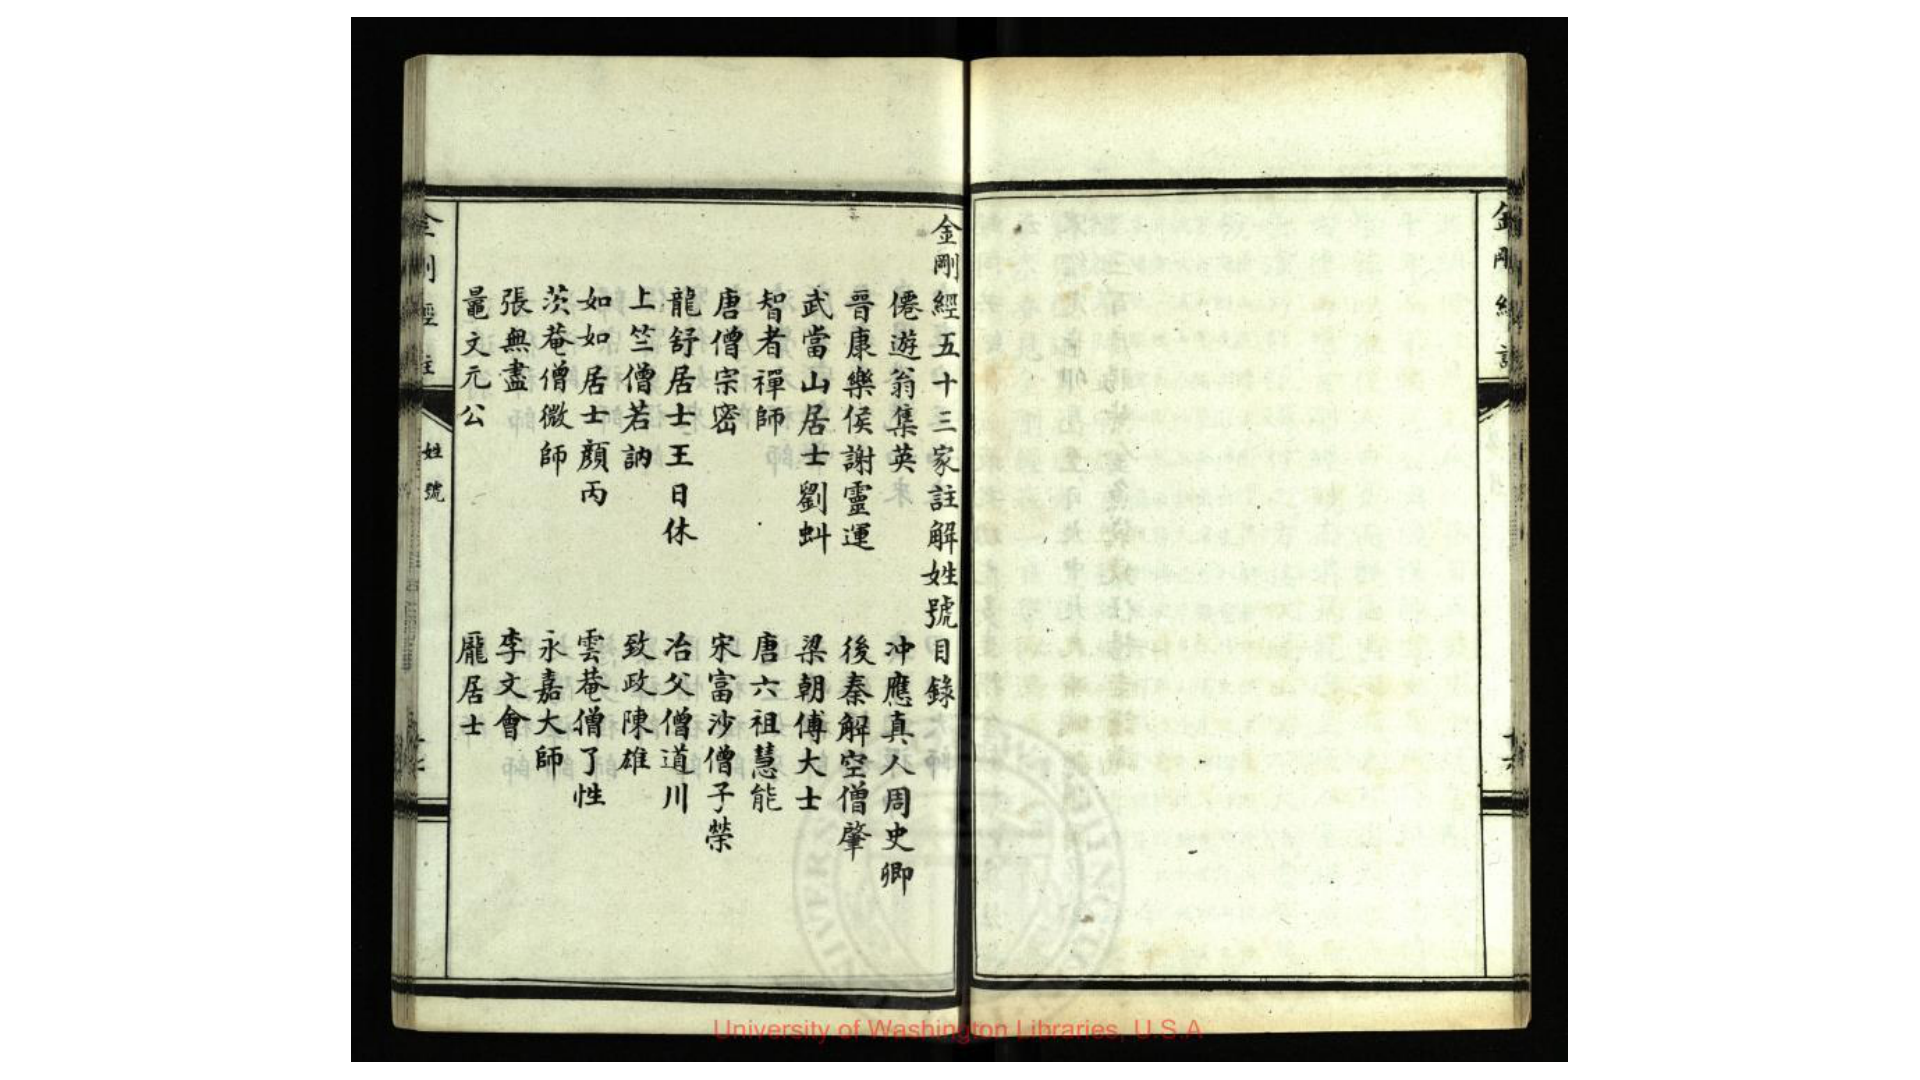 金剛經註
金剛經五十三家註解姓號目錄
僊遊翁集英　冲應真人周史卿
晉康樂侯謝靈運　後秦解空僧肇
武當山居士劉虯　梁朝傅大士
智者禪師　唐六祖慧能
唐僧宗密　宋富沙僧子榮
龍舒居士王日休　冶父僧道川
上竺僧若訥　致政陳雄
如如居士顏丙　雲菴僧了性
茨菴僧微師　永嘉大師
張無盡　李文會
鼂文元公　龐居士
金剛經註　姓號
University of Washington Libraries, U.S.A